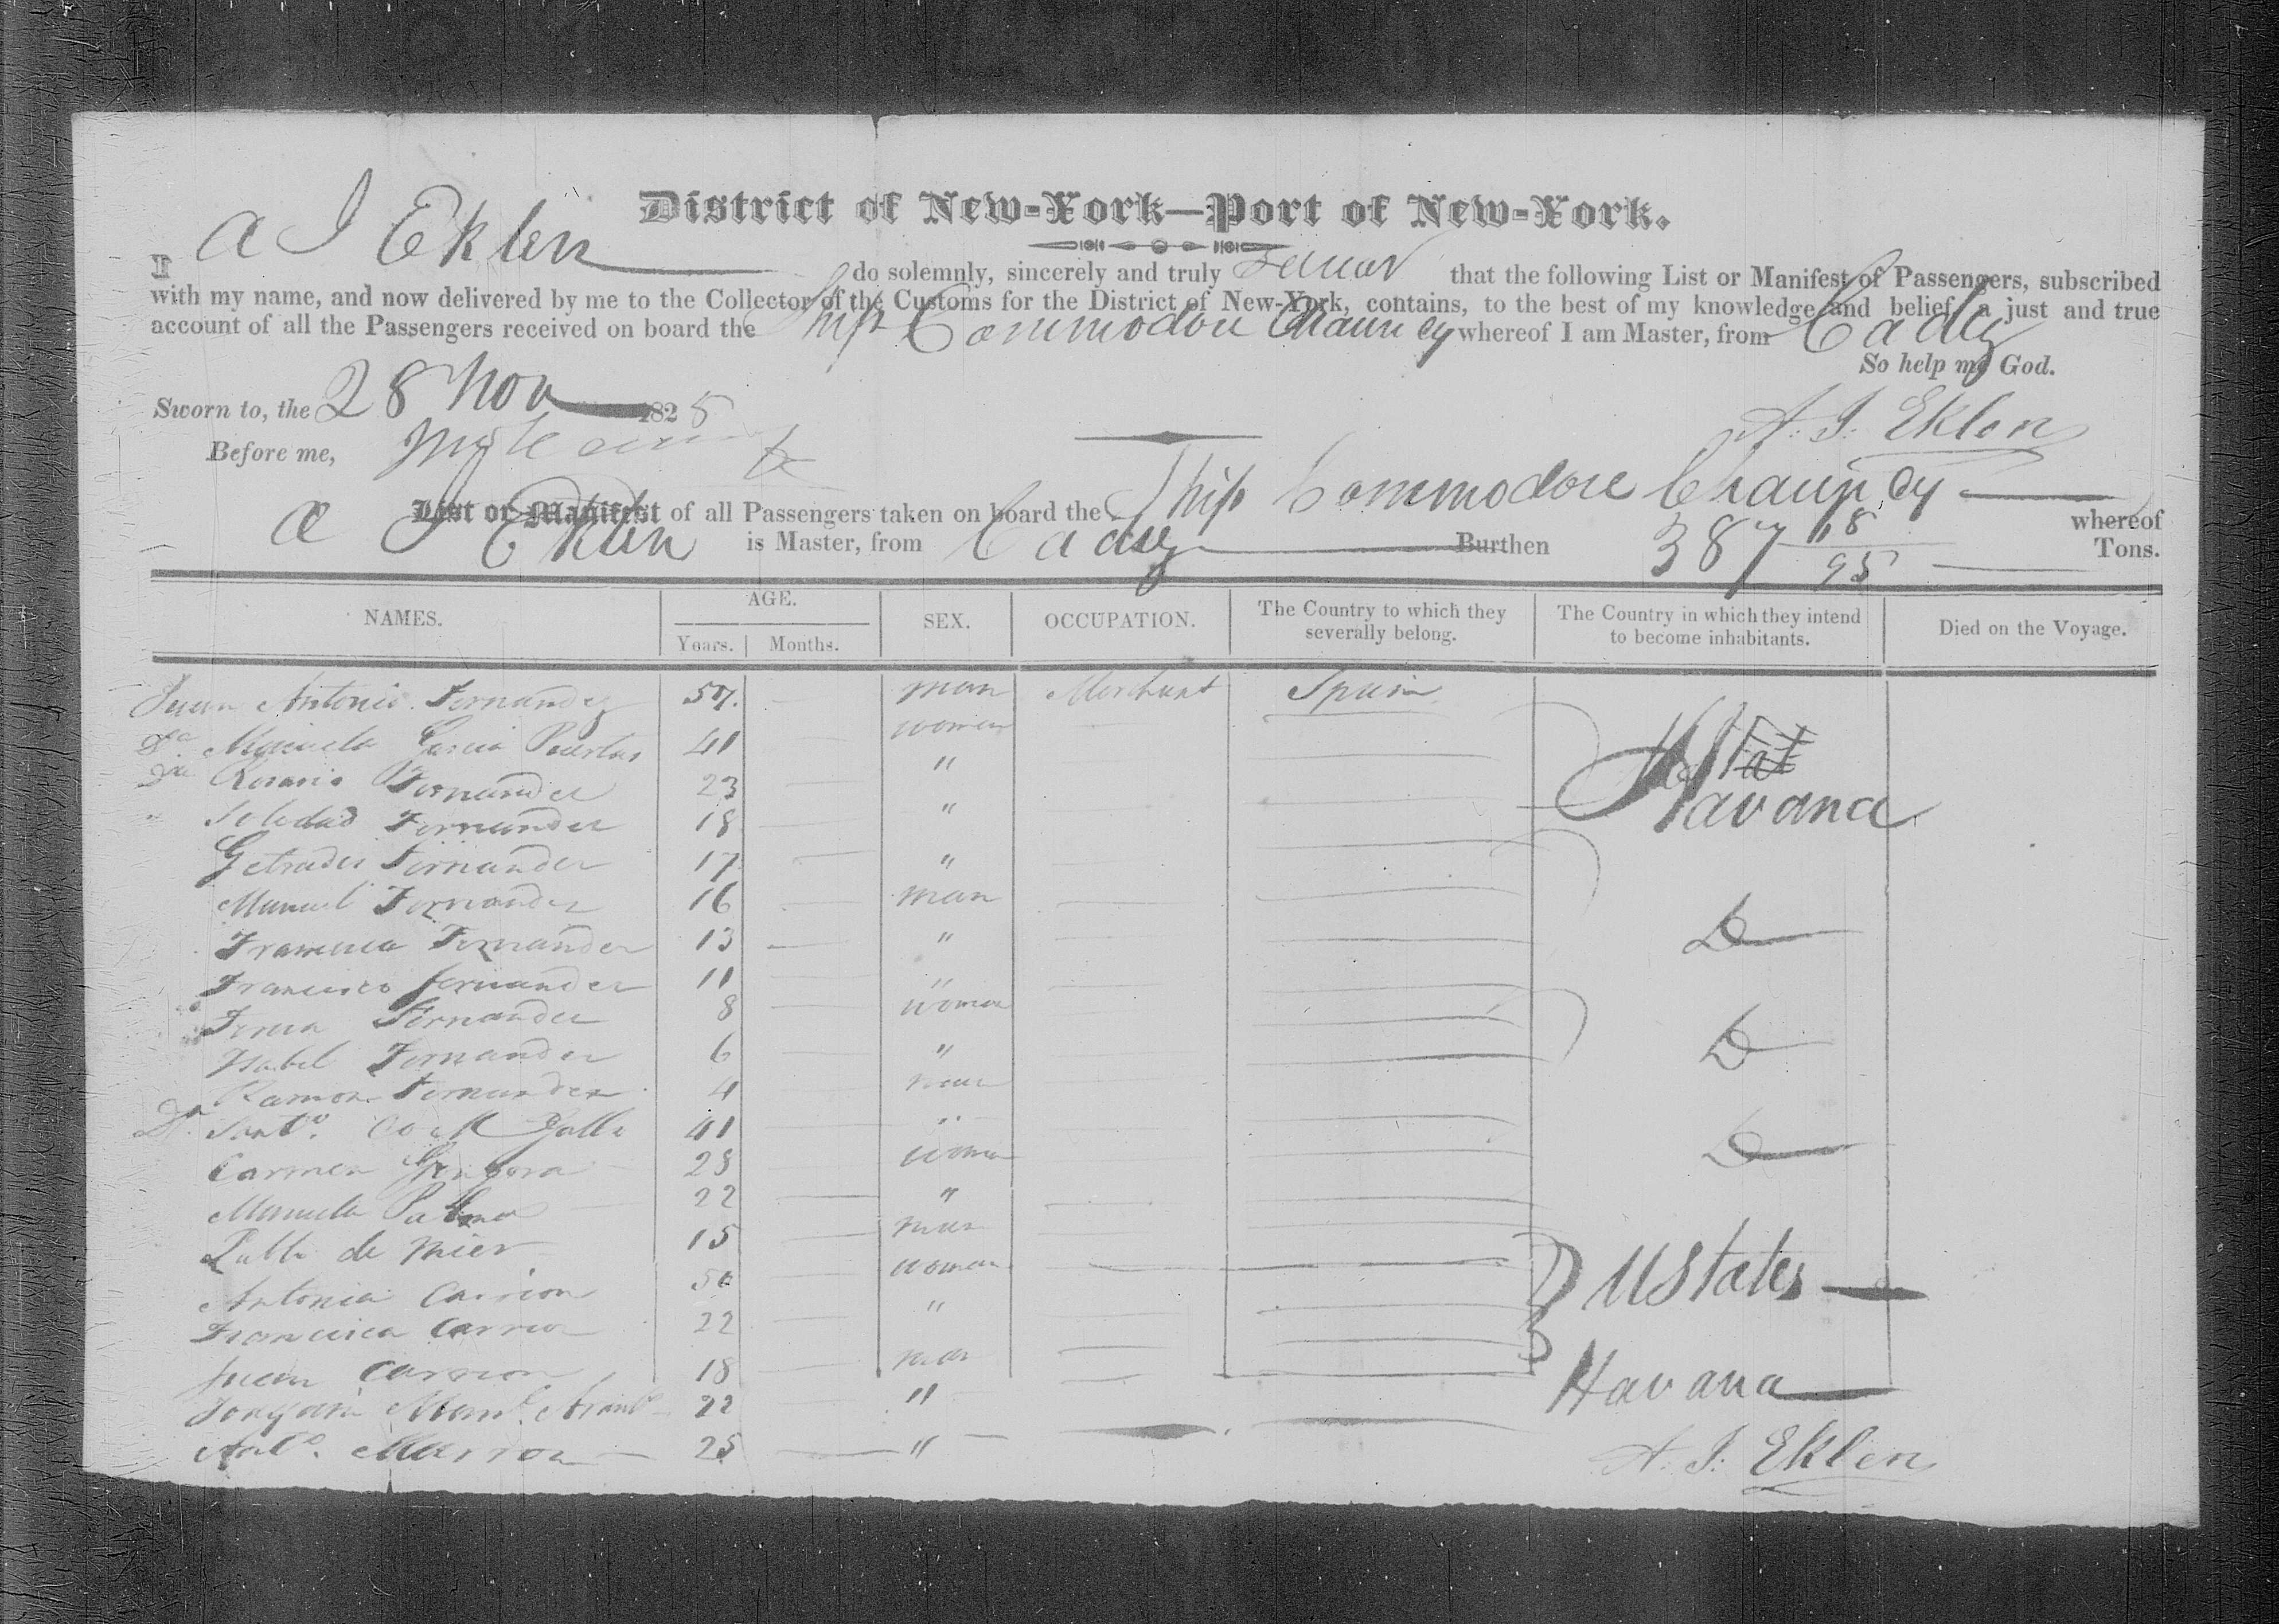 District of New-York—Port of New-York.
I A J Eklen do solemnly, sincerely and truly swear that the following List or Manifest of Passengers, subscribed
with my name, and now delivered by me to the Collector of the Customs for the District of New-York, contains, to the best of my knowledge and belief, a just and true
account of all the Passengers received on board the Ship Commodore Chauncy whereof I am Master, from Cadiz
So help me God.
Sworn to, the 28 Nov 1825
A. J. Eklen
Before me,
List or Manifest of all Passengers taken on board the Ship Commodore Chauncy whereof
A J Eklen is Master, from Cadiz Burthen 387 18/95 Tons.
NAMES. AGE. Years. Months. SEX. OCCUPATION. The Country to which they severally belong. The Country in which they intend to become inhabitants. Died on the Voyage.
Juan Antonio Fernandez 57. man Merchant Spain
Da. Manuela Garcia Puertas 41 women
Da Rosario Fernandez 23 "
" Soledad Fernandez 18 " Havana
Getrudes Fernandez 17 "
Manuel Fernandez 16 man
Francisca Fernandez 13 " Do
Francisco Fernandez 11 "
Fernandez 8 woman
Isabel Fernandez 6 " Do
Ramon Fernandez 4 man
Dn Santo. 41 "
Carmen 25 woman Do
Manuela Palma 22 "
Pablo de Mier 15 man
Antonia Carrion 50 woman U States
Francisca Carrion 22 "
Juan Carrion 18 man
22 " Havana
Anto. Marron 25 "
A. J. Eklen